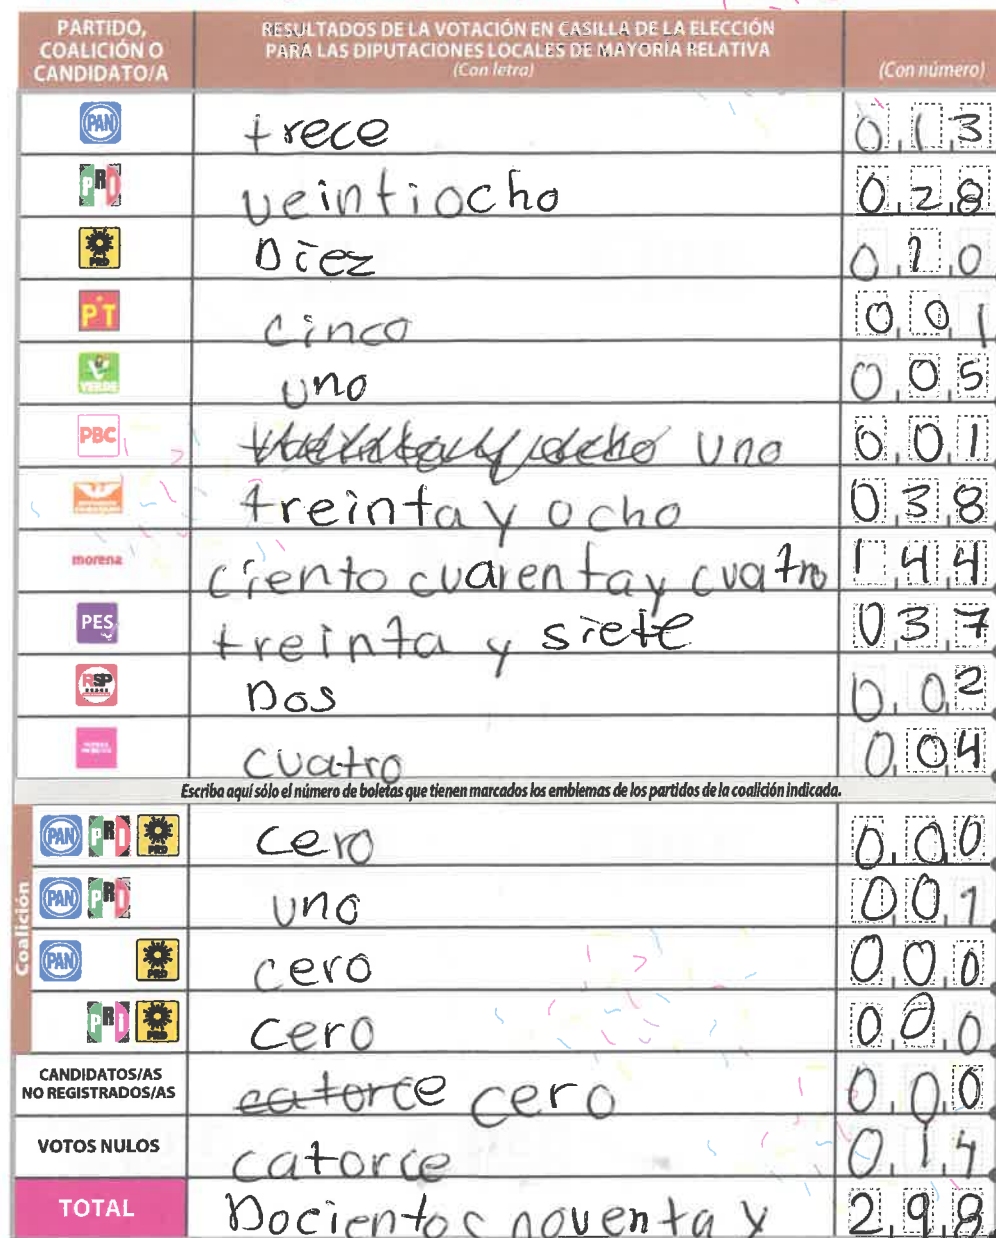 PARTIDO, COALICIÓN O CANDIDATO/A
RESULTADOS DE LA VOTACIÓN EN CASILLA DE LA ELECCIÓN PARA LAS DIPUTACIONES LOCALES DE MAYORÍA RELATIVA
(Con letra)
(Con número)
PAN trece 013
PRI veintiocho 028
PRD Diez 010
PT cinco 001
VERDE uno 005
PBC uno 001
treinta y ocho 038
morena ciento cuarenta y cuatro 144
PES treinta y siete 037
RSP Dos 002
cuatro 004
Escriba aquí sólo el número de boletas que tienen marcados los emblemas de los partidos de la coalición indicada.
Coalición
PAN PRI PRD cero 000
PAN PRI uno 001
PAN PRD cero 000
PRI PRD cero 000
CANDIDATOS/AS NO REGISTRADOS/AS catorce cero 000
VOTOS NULOS catorce 014
TOTAL Docientos noventa y 298